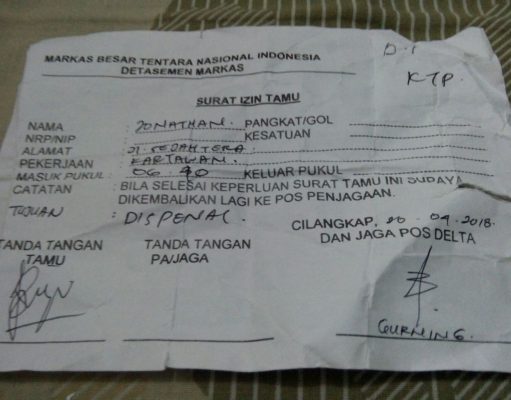 MARKAS BESAR TENTARA NASIONAL INDONESIA
DETASEMEN MARKAS
D.1
KTP.
SURAT IZIN TAMU
NAMA : JONATHAN. PANGKAT/GOL
NRP/NIP : KESATUAN :
ALAMAT : JL. SEJAHTERA.
PEKERJAAN : KARYAWAN.
MASUK PUKUL : 06.40 KELUAR PUKUL :
CATATAN : BILA SELESAI KEPERLUAN SURAT TAMU INI SUPAYA
DIKEMBALIKAN LAGI KE POS PENJAGAAN.
TUJUAN : DISPENAL.
CILANGKAP, 20 - 04 - 2018.
DAN JAGA POS DELTA
TANDA TANGAN
TAMU
TANDA TANGAN
PA/JAGA
GURNING.